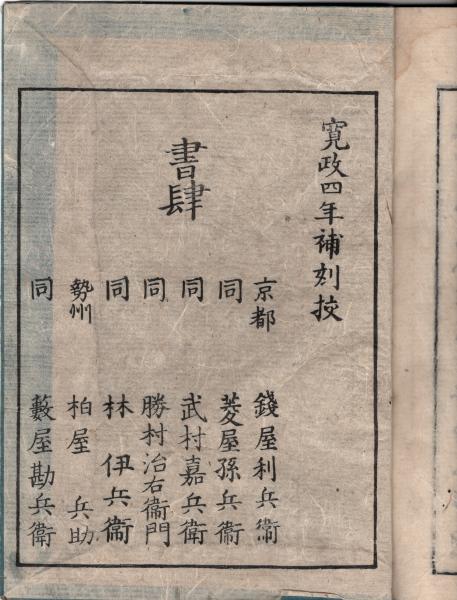 寛政四年補刻挍
書肆
京都 錢屋利兵衞
同 菱屋孫兵衞
同 武村嘉兵衛
同 勝村治右衞門
同 林伊兵衞
勢州 柏屋兵助
同 藪屋勘兵衛